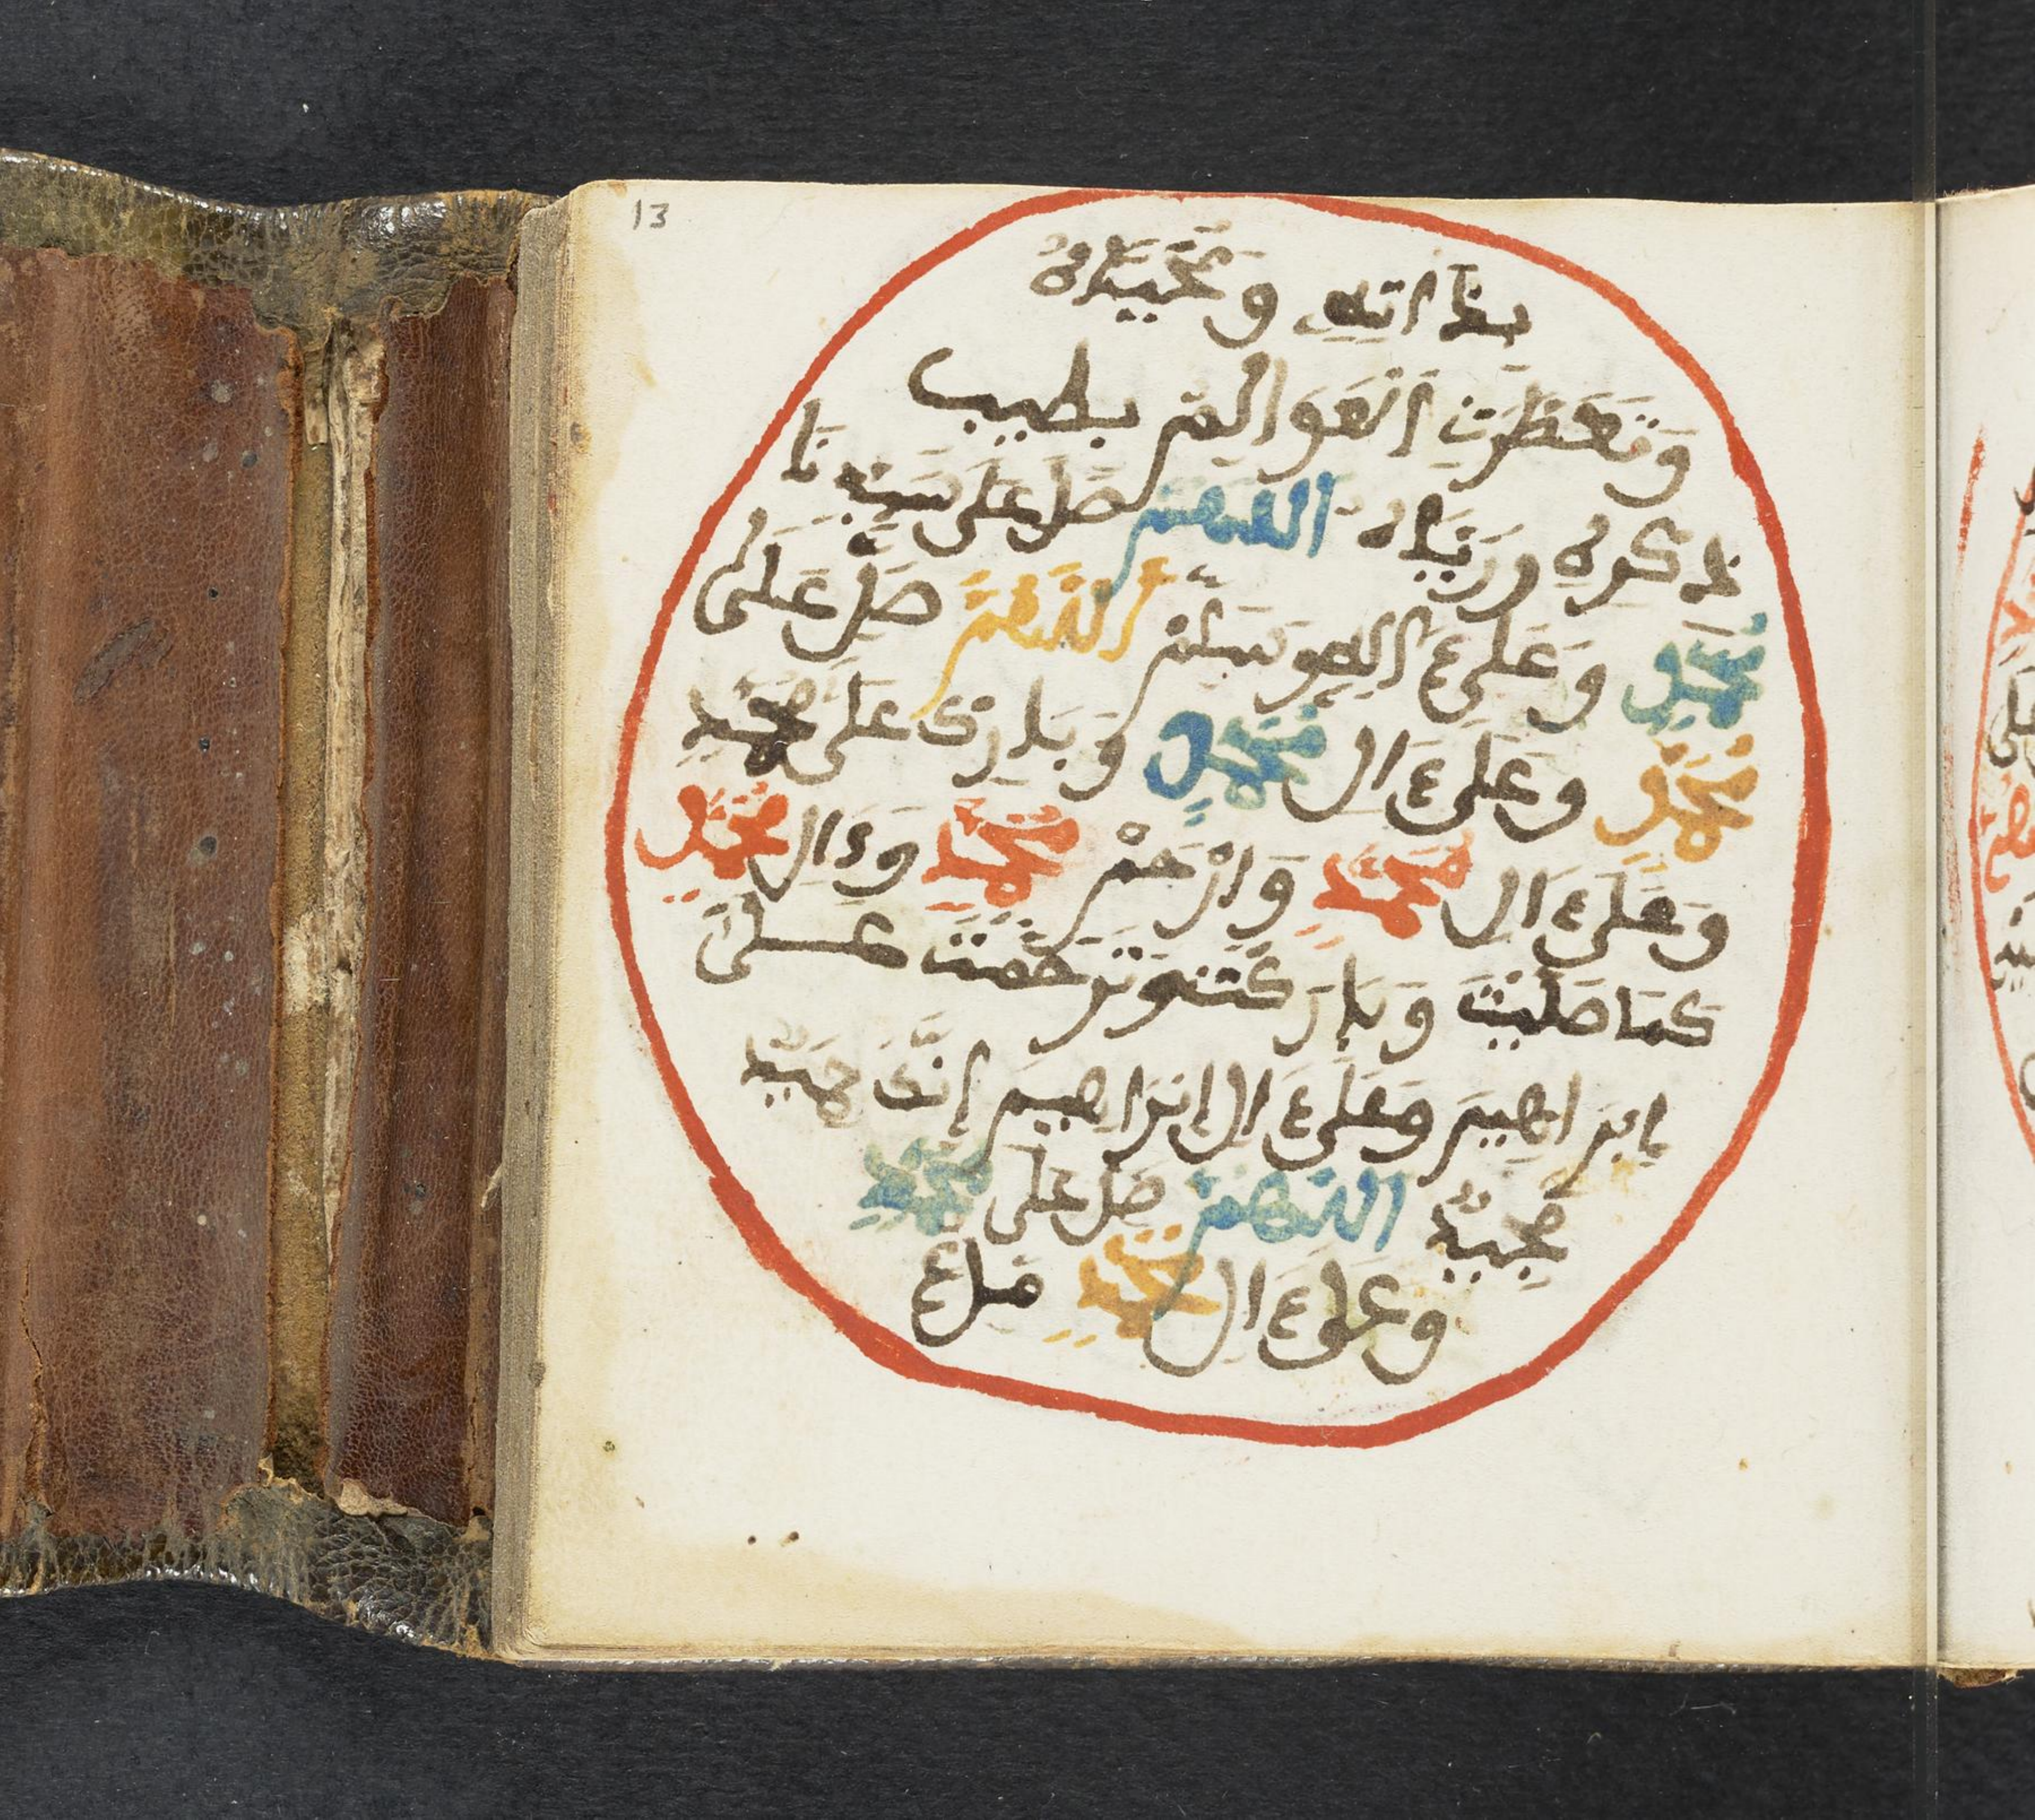 13
بذاته و محياه
وتعطرت العوالم بطيب
ذكره ورياه اللهم صل على سيدنا
محمد وعلىء اله وسلم اللهم صل على
محمد وعلىء ال محمد وبارك على محمد
وعلىء ال محمد وارحم محمد وءال محمد
كما صليت وباركت وترحمت على
إبراهيم وعلىء ال إبراهيم إنك حميد
مجيد اللهم صل على محمد
وعلىء ال محمد ملء